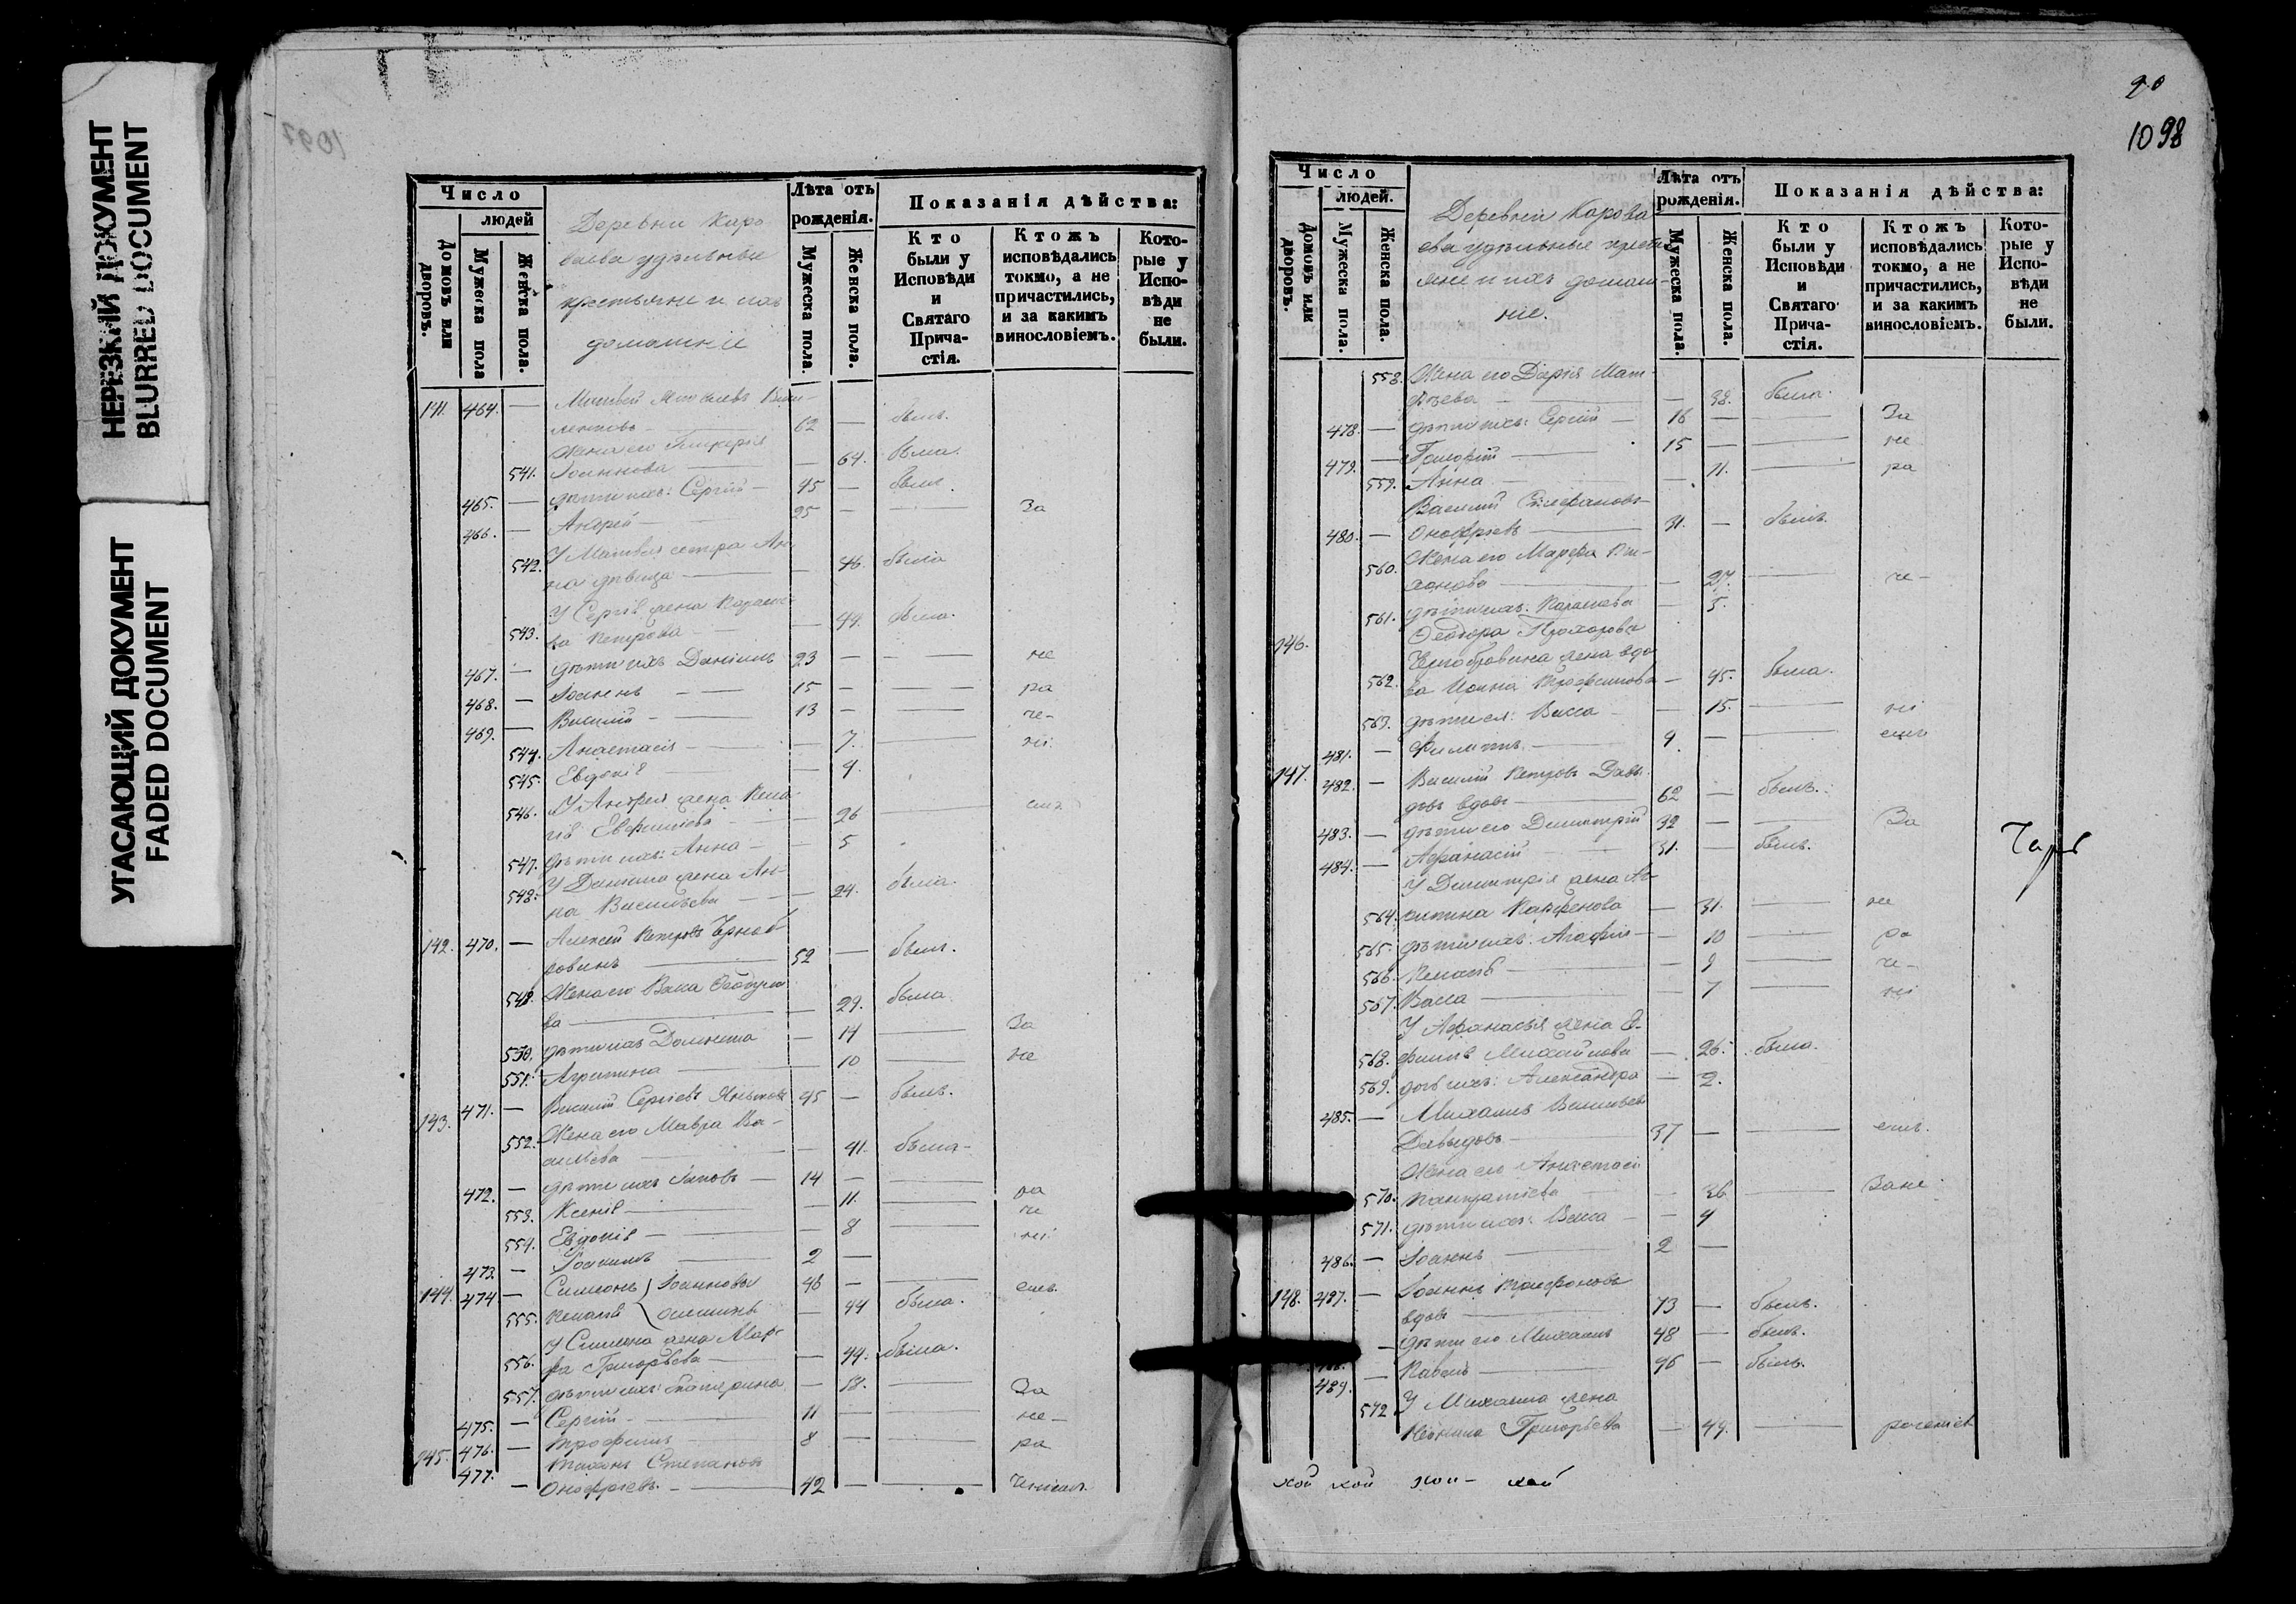 НЕРЕЗКИЙ ДОКУМЕНТ
BLURRED DOCUMENT
УГАСАЮЩИЙ ДОКУМЕНТ
FADED DOCUMENT
1097
Число
людей
Домовъ или дворовъ.
Мужеска пола
Женска пола.
Деревни Каро
ваева удѣльные
крестьяне и ихъ
домашніе
Лѣта отъ рожденія.
Мужеска пола.
Женска пола.
Показанія дѣйства:
Кто были у Исповѣди и Святаго Прича-стія.
Ктожъ исповѣдались токмо, а не причастились, и за какимъ винословіемъ.
Кото-рые у Испо-вѣди не были.
141. 464. — Матвей
62 — былъ.
Жена его Гликерія
541. Іоаннова — 64. была.
465. — дѣти ихъ: Сергій — 45 — былъ
466. — Андрей — 25 — — За
У Матвея сестра Ан-
542. на дѣвица — 46. была
У Сергія жена Параске-
543. ва Петрова — 44. была.
467. — дѣти ихъ Даніилъ 23 — — не
468. — Іоаннъ — 15 — — ра
469. — Василій — 13 — — че-
544. Анастасія — 7. — ні
545. Евдокія — 4.
546. У Андрея жена Кела-
26 — емъ
547. дѣти ихъ: Анна — 5
У Даніила жена Ан-
548. на Васильева — 24. была.
142. 470. — Алексей Петровъ Черноб
ровинъ — 52 — былъ.
549. Жена его Васса Ѳеодоро
ва — 29. была
550. дѣти ихъ Домника — 14 — За
551. Агрипина — 10 — не
143. 471. — Василій Сергіевъ 45 — былъ.
552. Жена его Мавра Ва-
сильева — 41. была-
472. — дѣти ихъ Іаковъ — 14 — — ра
553. Ксенія — 11. — че
554. Евдокія — 8 — ні
473 — Іоакимъ — 2 —
144. 474 — Симеонъ Іоанновы 46 — — емъ.
555. Келасія 44 была.
У Симеона жена Мар-
556. фа Григорьева — 44. была.
557. дѣти ихъ: Екатерина — 13. — За
475. — Сергій — 11 — — не-
476. — Трофимъ — 8 — — ра
145. Тихонъ Степановъ
477. — Онофріевъ. — 42 — — ченіемъ
90
1098
Число
людей.
Домовъ или дворовъ.
Мужеска пола.
Женска пола.
Деревни Карова
ева удѣльные кресть
яне и ихъ домаш-
ніе.
Лѣта отъ рожденія.
Мужеска пола.
Женска пола.
Показанія дѣйства:
Кто были у Исповѣди и Святаго Прича-стія.
Ктожъ исповѣдались токмо, а не причастились, и за какимъ винословіемъ.
Кото-рые у Испо-вѣди не были.
558. Жена его Дарія Мат-
фѣева — 38. была.
478. — дѣти ихъ: Сергій — 16 — — За
479. — Григорій — 15 — — не
559. Анна — 11. — ра
Василій Стефановъ
480. — Онофріевъ — 31. — былъ.
560. Жена его Марфа Ти-
хонова — 27. — че-
561. дѣти ихъ: Параскева — 5.
146. Ѳеодора Прохорова
Чернобровина жена вдо
562. ва Ирина Трофимова — 45. была.
563. дѣти ея: Васса — 15. — ні
481. — Филиппъ — 9. — — емъ
147. 482. — Василій Петровъ Давы
довъ вдовъ — 62 — былъ.
483. — дѣти его Димитрій 32 — — За
484. — Афанасій — 31. — былъ.
У Димитрія жена Аг-
564. рипина Парфенова — 31. — не
565. дѣти ихъ: Агафія — 10 — ра
566. Келасія — 9 — че-
567. Васса — 7 — ні
У Афанасія жена Е-
568. фимія Михайлова — 26. была.
569. дочь ихъ: Александра — 2.
485. — Михаилъ Васильевъ
Давыдовъ — 37 — — емъ.
Жена его Анастасія
570. Панкратіева — 36 — Зане
571. дѣти ихъ: Васса — 4
486. — Іоаннъ — 2 —
148. 487. — Іоаннъ Трифоновъ
вдовъ — 73 — былъ.
488. — дѣти его Михаилъ 48 — былъ.
489. — Павелъ — 46 — былъ.
572 У Михаила жена
Григорьева — 49. —
кой кой кои- кой